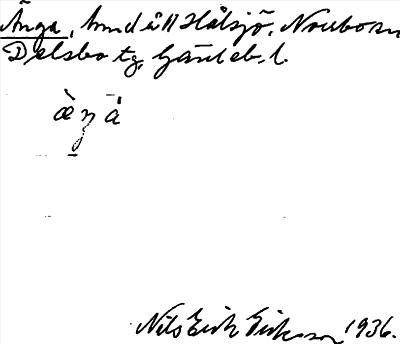 Änga, hmd åt Hålsjö, Norrbom
Delsbo tg, Gävleb. l.
æ̀ŋā̊
Nils Erik Eriksson 1936.